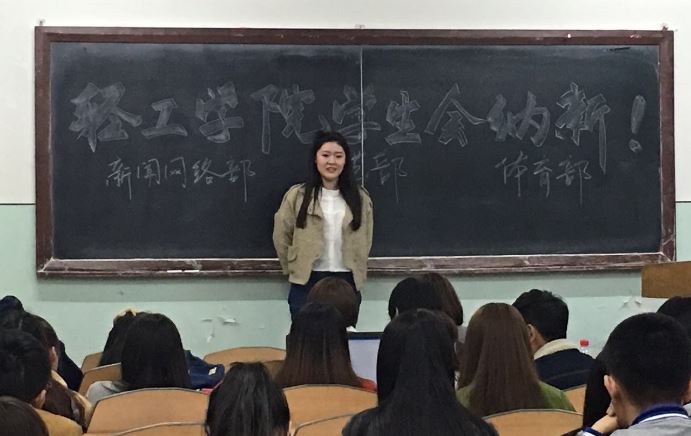 轻工学院学生会纳新!
新闻网络部 部 体育部